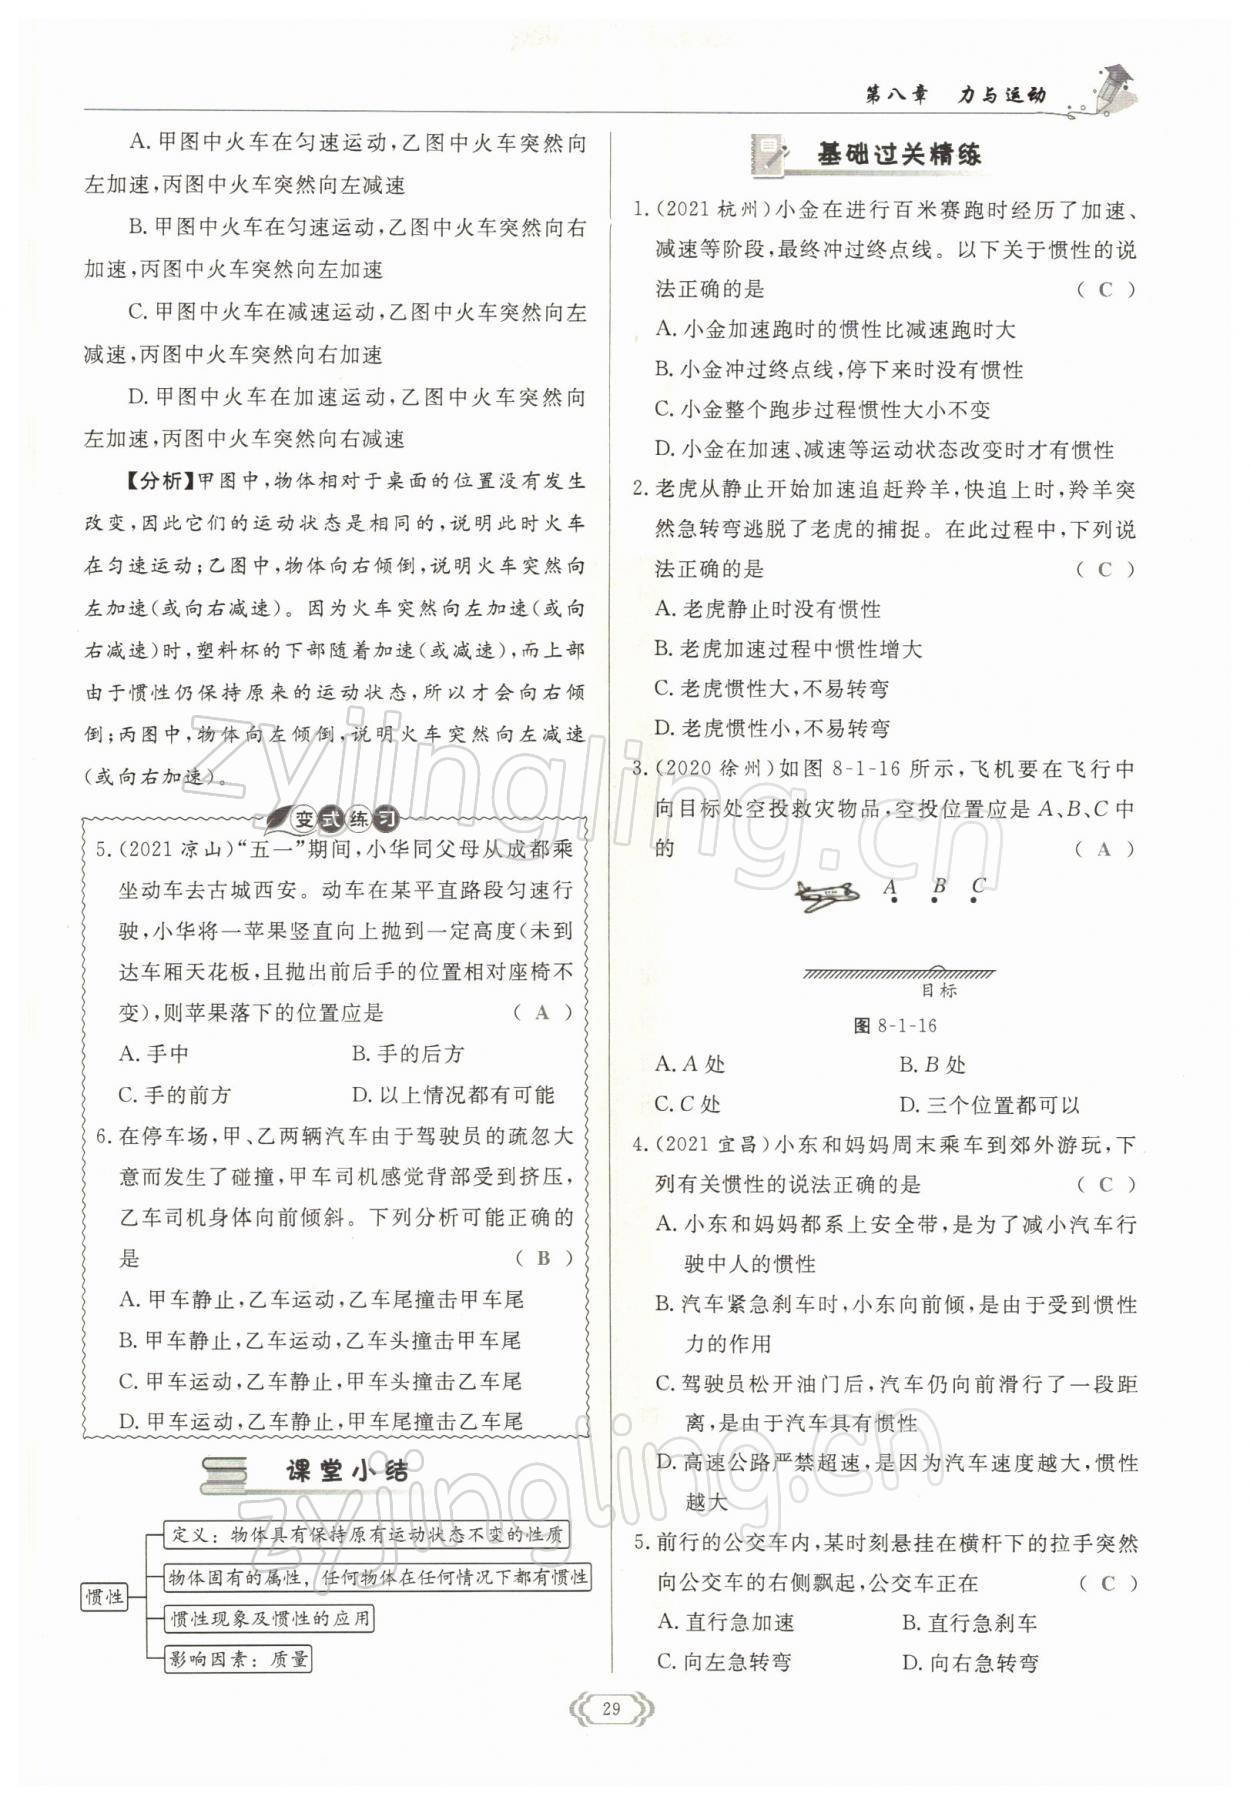 第八章　力与运动
A. 甲图中火车在匀速运动,乙图中火车突然向
左加速,丙图中火车突然向左减速
B. 甲图中火车在匀速运动,乙图中火车突然向右
加速,丙图中火车突然向左加速
C. 甲图中火车在减速运动,乙图中火车突然向左
减速,丙图中火车突然向右加速
D. 甲图中火车在加速运动,乙图中火车突然向
左加速,丙图中火车突然向右减速
【分析】甲图中,物体相对于桌面的位置没有发生
改变,因此它们的运动状态是相同的,说明此时火车
在匀速运动;乙图中,物体向右倾倒,说明火车突然向
左加速(或向右减速)。因为火车突然向左加速(或向
右减速)时,塑料杯的下部随着加速(或减速),而上部
由于惯性仍保持原来的运动状态,所以才会向右倾
倒;丙图中,物体向左倾倒,说明火车突然向左减速
(或向右加速)。
变式练习
5. (2021 凉山)“五一”期间,小华同父母从成都乘
坐动车去古城西安。动车在某平直路段匀速行
驶,小华将一苹果竖直向上抛到一定高度(未到
达车厢天花板,且抛出前后手的位置相对座椅不
变),则苹果落下的位置应是 ( A )
A. 手中 B. 手的后方
C. 手的前方 D. 以上情况都有可能
6. 在停车场,甲、乙两辆汽车由于驾驶员的疏忽大
意而发生了碰撞,甲车司机感觉背部受到挤压,
乙车司机身体向前倾斜。下列分析可能正确的
是 ( B )
A. 甲车静止,乙车运动,乙车尾撞击甲车尾
B. 甲车静止,乙车运动,乙车头撞击甲车尾
C. 甲车运动,乙车静止,甲车头撞击乙车尾
D. 甲车运动,乙车静止,甲车尾撞击乙车尾
课堂小结
惯性
定义：物体具有保持原有运动状态不变的性质
物体固有的属性，任何物体在任何情况下都有惯性
惯性现象及惯性的应用
影响因素：质量
基础过关精练
1. (2021 杭州)小金在进行百米赛跑时经历了加速、
减速等阶段,最终冲过终点线。以下关于惯性的说
法正确的是 ( C )
A. 小金加速跑时的惯性比减速跑时大
B. 小金冲过终点线,停下来时没有惯性
C. 小金整个跑步过程惯性大小不变
D. 小金在加速、减速等运动状态改变时才有惯性
2. 老虎从静止开始加速追赶羚羊,快追上时,羚羊突
然急转弯逃脱了老虎的捕捉。在此过程中,下列说
法正确的是 ( C )
A. 老虎静止时没有惯性
B. 老虎加速过程中惯性增大
C. 老虎惯性大,不易转弯
D. 老虎惯性小,不易转弯
3. (2020 徐州)如图 8-1-16 所示,飞机要在飞行中
向目标处空投救灾物品,空投位置应是 A、B、C 中
的 ( A )
A B C
目标
图 8-1-16
A. A 处 B. B 处
C. C 处 D. 三个位置都可以
4. (2021 宜昌)小东和妈妈周末乘车到郊外游玩,下
列有关惯性的说法正确的是 ( C )
A. 小东和妈妈都系上安全带,是为了减小汽车行
驶中人的惯性
B. 汽车紧急刹车时,小东向前倾,是由于受到惯性
力的作用
C. 驾驶员松开油门后,汽车仍向前滑行了一段距
离,是由于汽车具有惯性
D. 高速公路严禁超速,是因为汽车速度越大,惯性
越大
5. 前行的公交车内,某时刻悬挂在横杆下的拉手突然
向公交车的右侧飘起,公交车正在 ( C )
A. 直行急加速 B. 直行急刹车
C. 向左急转弯 D. 向右急转弯
29
zyjingling.cn
zyjingling.cn